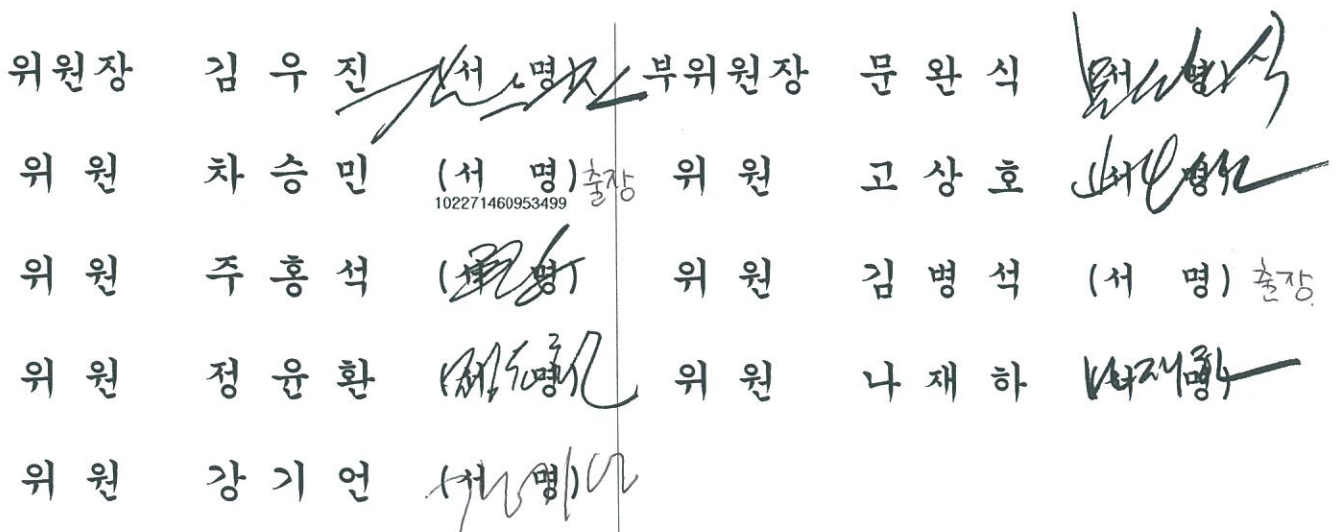 위원장 김 우 진 (서 명) 부위원장 문 완 식 (서 명)
위 원 차 승 민 (서 명) 출장 위 원 고 상 호 (서 명)
102271460953499
위 원 주 홍 석 (서 명) 위 원 김 병 석 (서 명) 출장
위 원 정 윤 환 (서 명) 위 원 나 재 하 (서 명)
위 원 강 기 언 (서 명)